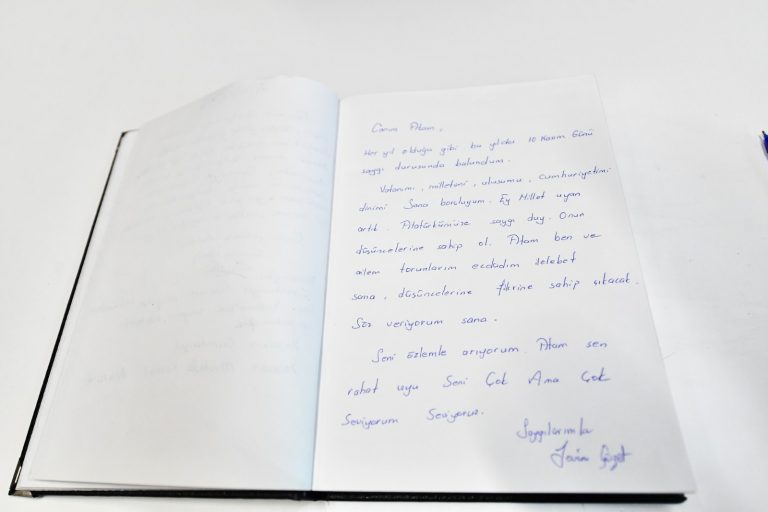 Canım Atam,
Her yıl olduğu gibi bu yılda 10 Kasım Günü
saygı durusunda bulundum.
Vatanımı, milletimi, ulusumu, cumhuriyetimi
dinimi Sana borçluyum. Ey Millet uyan
artık. Atatürkümüze saygı duy. Onun
düşüncelerine sahip ol. Atam ben ve
ailem torunlarım ecdadım
sana, düşüncelerine fikrine sahip çıkacak.
Söz veriyorum sana.
Seni özlemle arıyorum. Atam sen
rahat uyu Seni Çok Ama Çok
Seviyorum Seviyoruz.
Saygılarımla